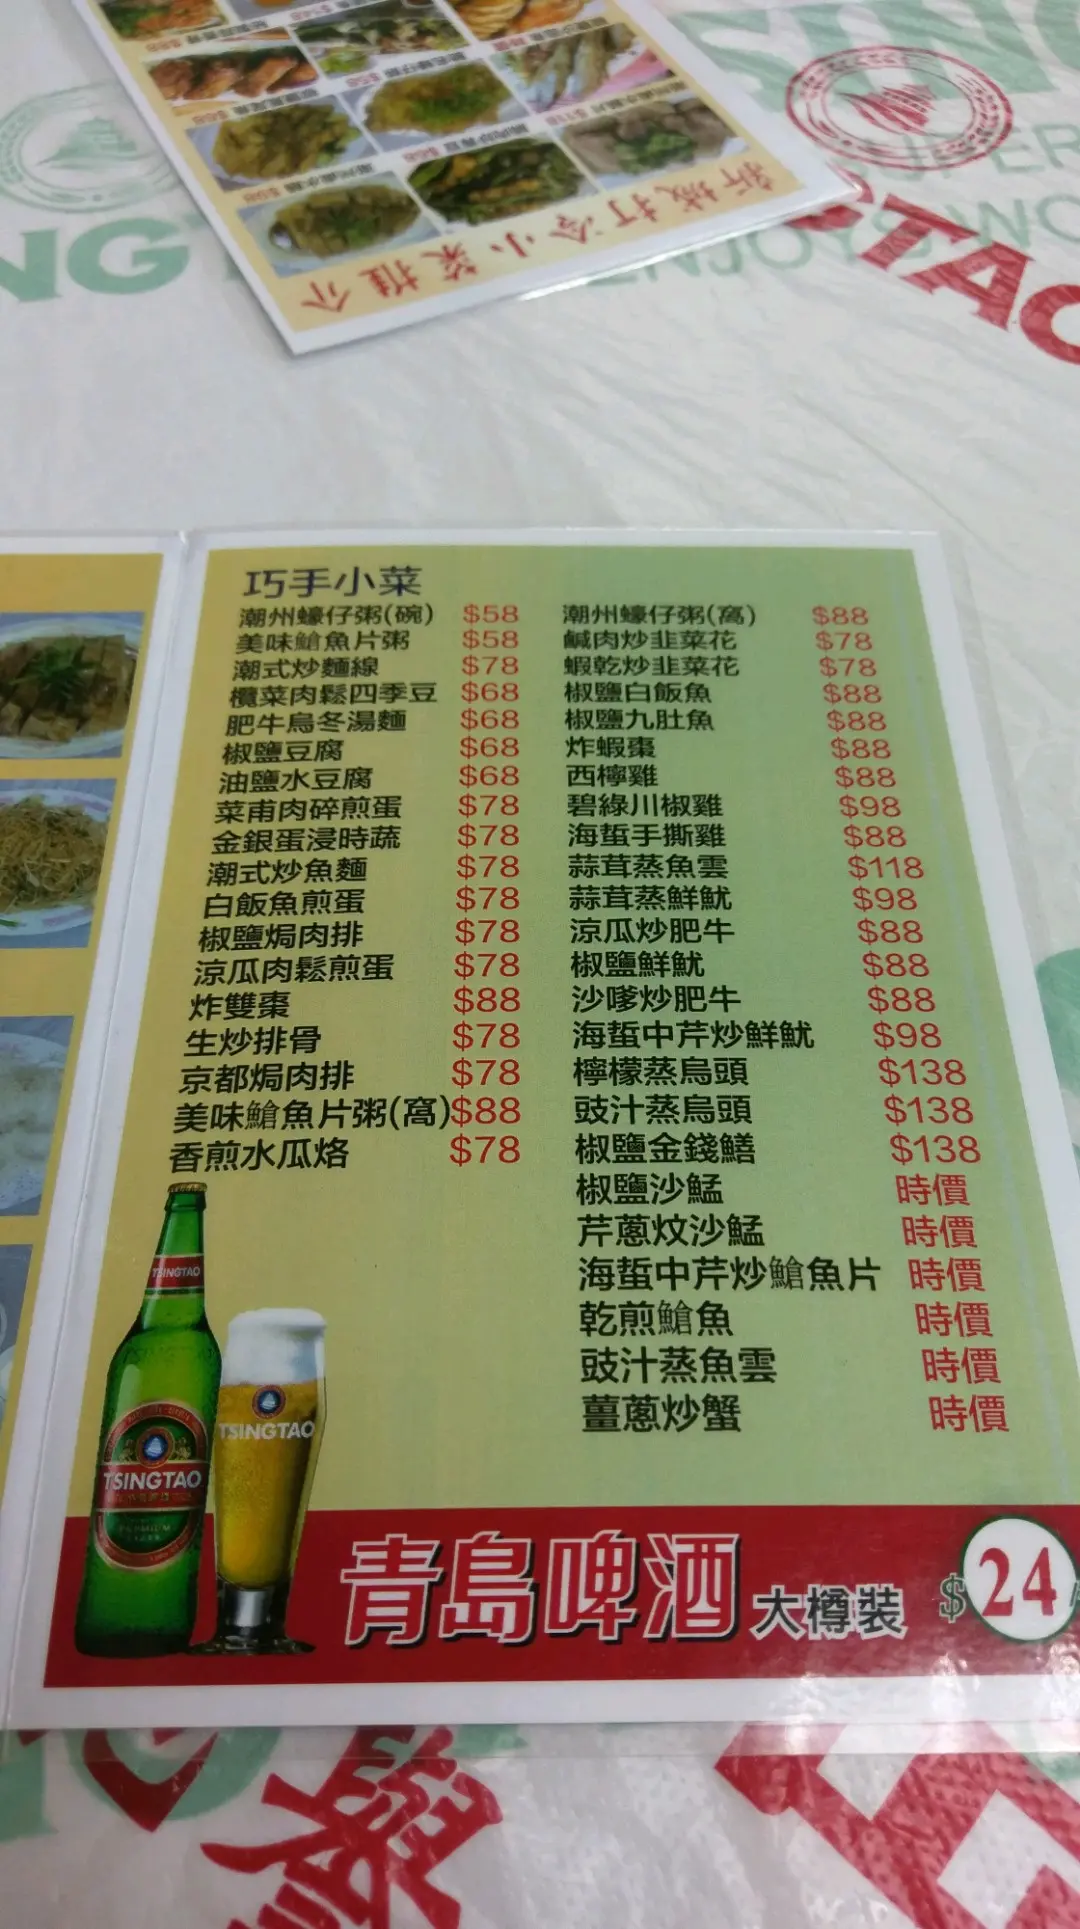 新城打冷小菜推介
巧手小菜
潮州蠔仔粥(碗) $58
美味鯧魚片粥 $58
潮式炒麵線 $78
欖菜肉鬆四季豆 $68
肥牛烏冬湯麵 $68
椒鹽豆腐 $68
油鹽水豆腐 $68
菜甫肉碎煎蛋 $78
金銀蛋浸時蔬 $78
潮式炒魚麵 $78
白飯魚煎蛋 $78
椒鹽焗肉排 $78
涼瓜肉鬆煎蛋 $78
炸雙棗 $88
生炒排骨 $78
京都焗肉排 $78
美味鯧魚片粥(窩) $88
香煎水瓜烙 $78
潮州蠔仔粥(窩) $88
鹹肉炒韭菜花 $78
蝦乾炒韭菜花 $78
椒鹽白飯魚 $88
椒鹽九肚魚 $88
炸蝦棗 $88
西檸雞 $88
碧綠川椒雞 $98
海蜇手撕雞 $88
蒜茸蒸魚雲 $118
蒜茸蒸鮮魷 $98
涼瓜炒肥牛 $88
椒鹽鮮魷 $88
沙嗲炒肥牛 $88
海蜇中芹炒鮮魷 $98
檸檬蒸烏頭 $138
豉汁蒸烏頭 $138
椒鹽金錢鱔 $138
椒鹽沙鯭 時價
芹蔥炆沙鯭 時價
海蜇中芹炒鯧魚片 時價
乾煎鯧魚 時價
豉汁蒸魚雲 時價
薑蔥炒蟹 時價
TSINGTAO
TSINGTAO
TSINGTAO
青島啤酒 大樽裝 $24